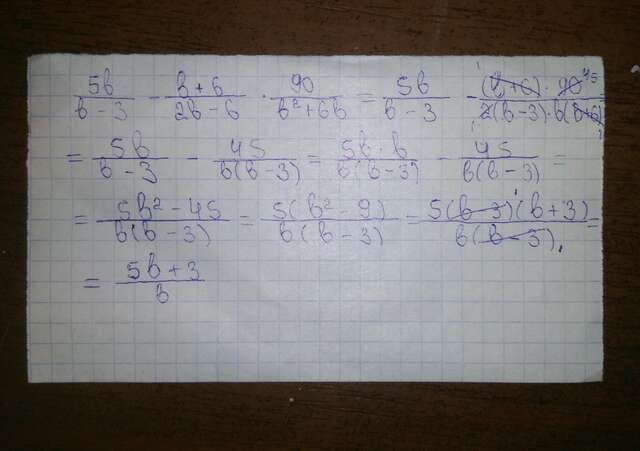 5b/(b - 3) - (b + 6)/(2b - 6) · 90/(b² + 6b) = 5b/(b - 3) - ((b + 6) · 90 45)/(2(b - 3) · b(b + 6))
= 5b/(b - 3) - 45/(b(b - 3)) = 5b · b/(b(b - 3)) - 45/(b(b - 3)) =
= (5b² - 45)/(b(b - 3)) = 5(b² - 9)/(b(b - 3)) = 5(b - 3)(b + 3)/(b(b - 3)) =
= (5b + 3)/b